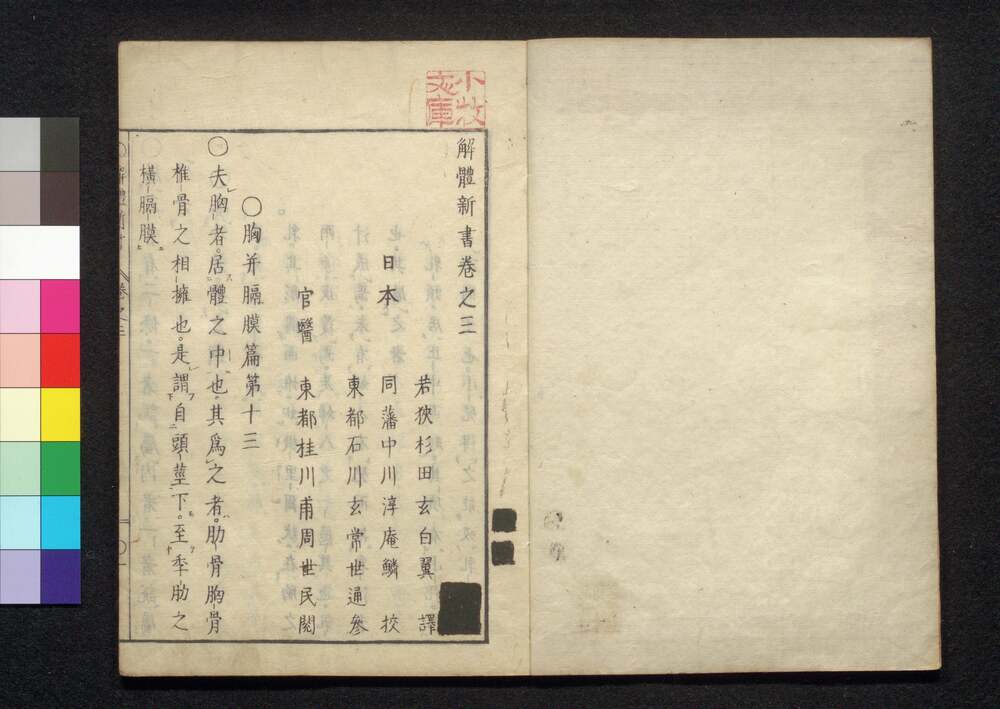 小牧
文庫
解體新書卷之三
若狹杉田玄白翼 譯
日本 同藩中川淳庵鱗 挍
東都石川玄常世通參
官醫 東都桂川甫周世民閱
〇胸并膈膜篇第十三
〇夫胸者。居體之中也。其爲之者。肋骨胸骨
椎骨之相擁也。是謂自頭莖下。至季肋之
橫膈膜
解體新書 卷之三